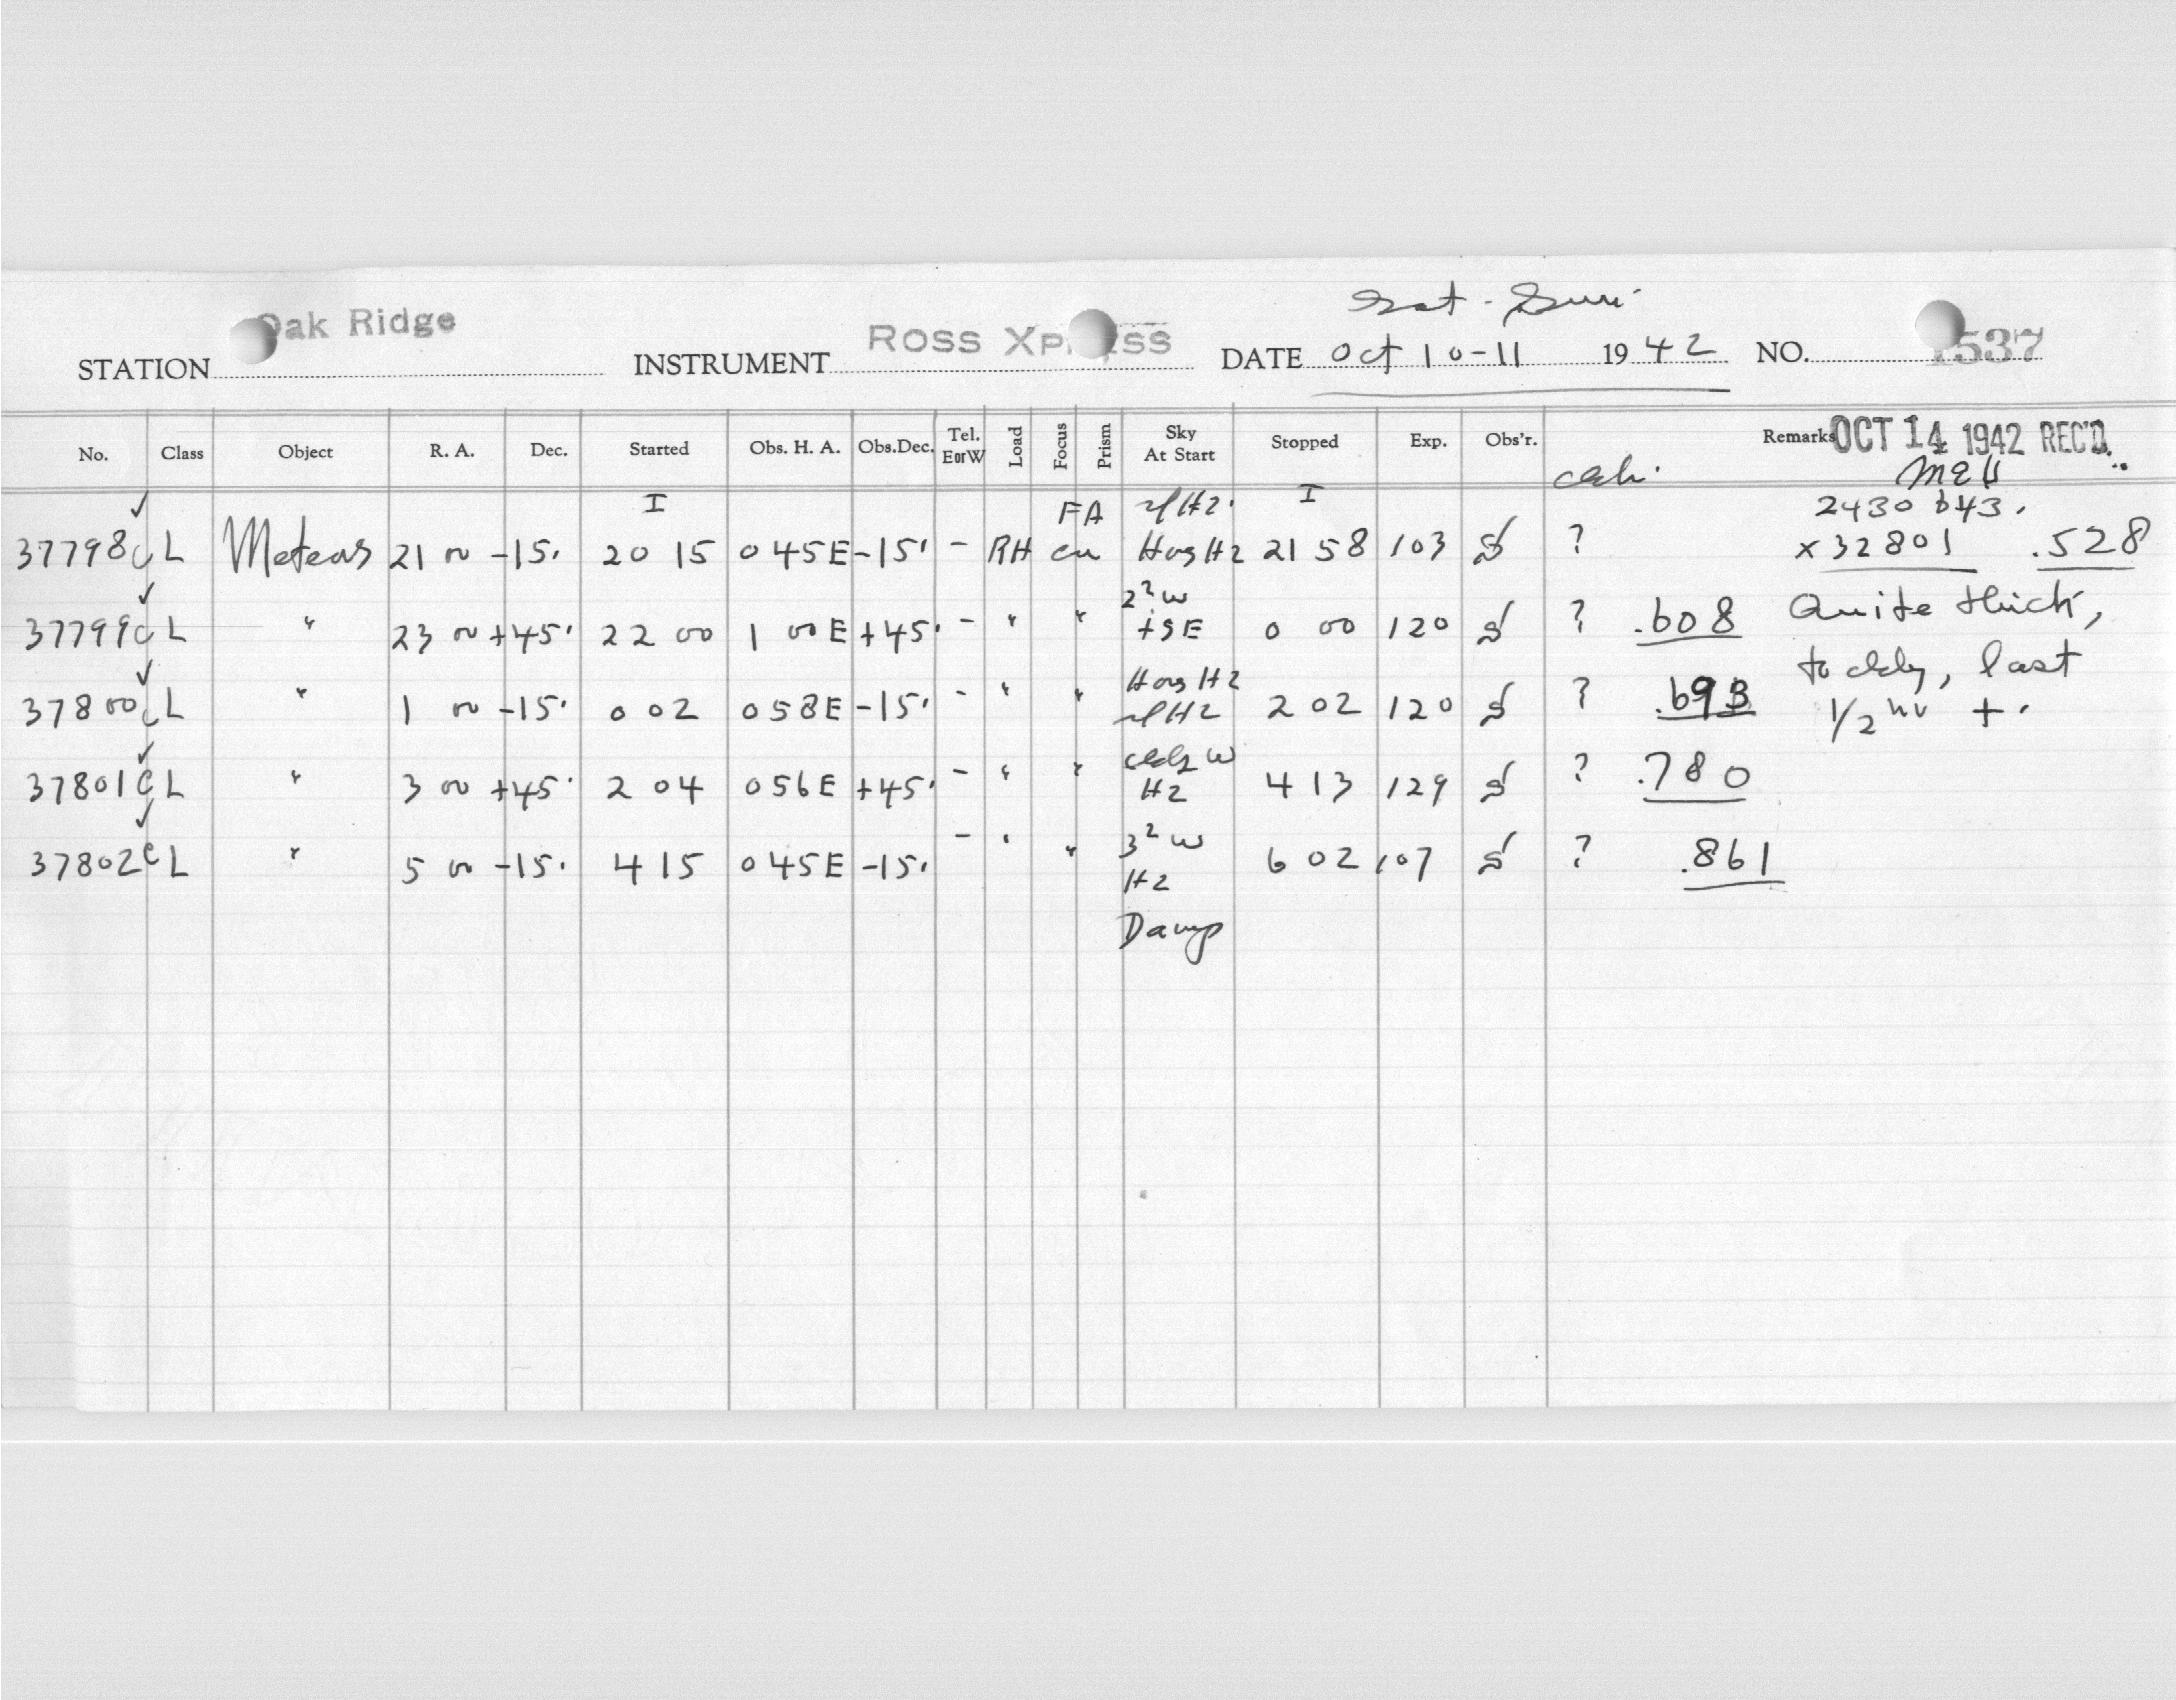 Sat - Sun.
STATION Oak Ridge INSTRUMENT ROSS XPRESS DATE Oct 10-11 1942 NO. 1537
No. Class Object R. A. Dec. Started Obs. H. A. Obs.Dec. Tel. E or W Load Focus Prism Sky At Start Stopped Exp. Obs'r. Remarks OCT 14 1942 REC'D.
I FA I 2430643.
37798c L Meteors 21 00 -15. 20 15 0 45E -15. - RH 21 58 103 S ? x 32801 .528
37799c L " 23 00 +45. 22 00 1 00E +45. - " " 2² W + SE 0 00 120 S ? .608 Quite thick,
37800c L " 1 00 -15. 0 02 0 58E -15. - " " 2 02 120 S ? .693 to cldy, last
1/2 hr +.
37801c L " 3 00 +45. 2 04 0 56E +45. - " " cldy W Hz 4 13 129 S ? .780
37802c L " 5 00 -15. 4 15 0 45E -15. - " " 3² W Hz 6 02 107 S ? .861
Damp